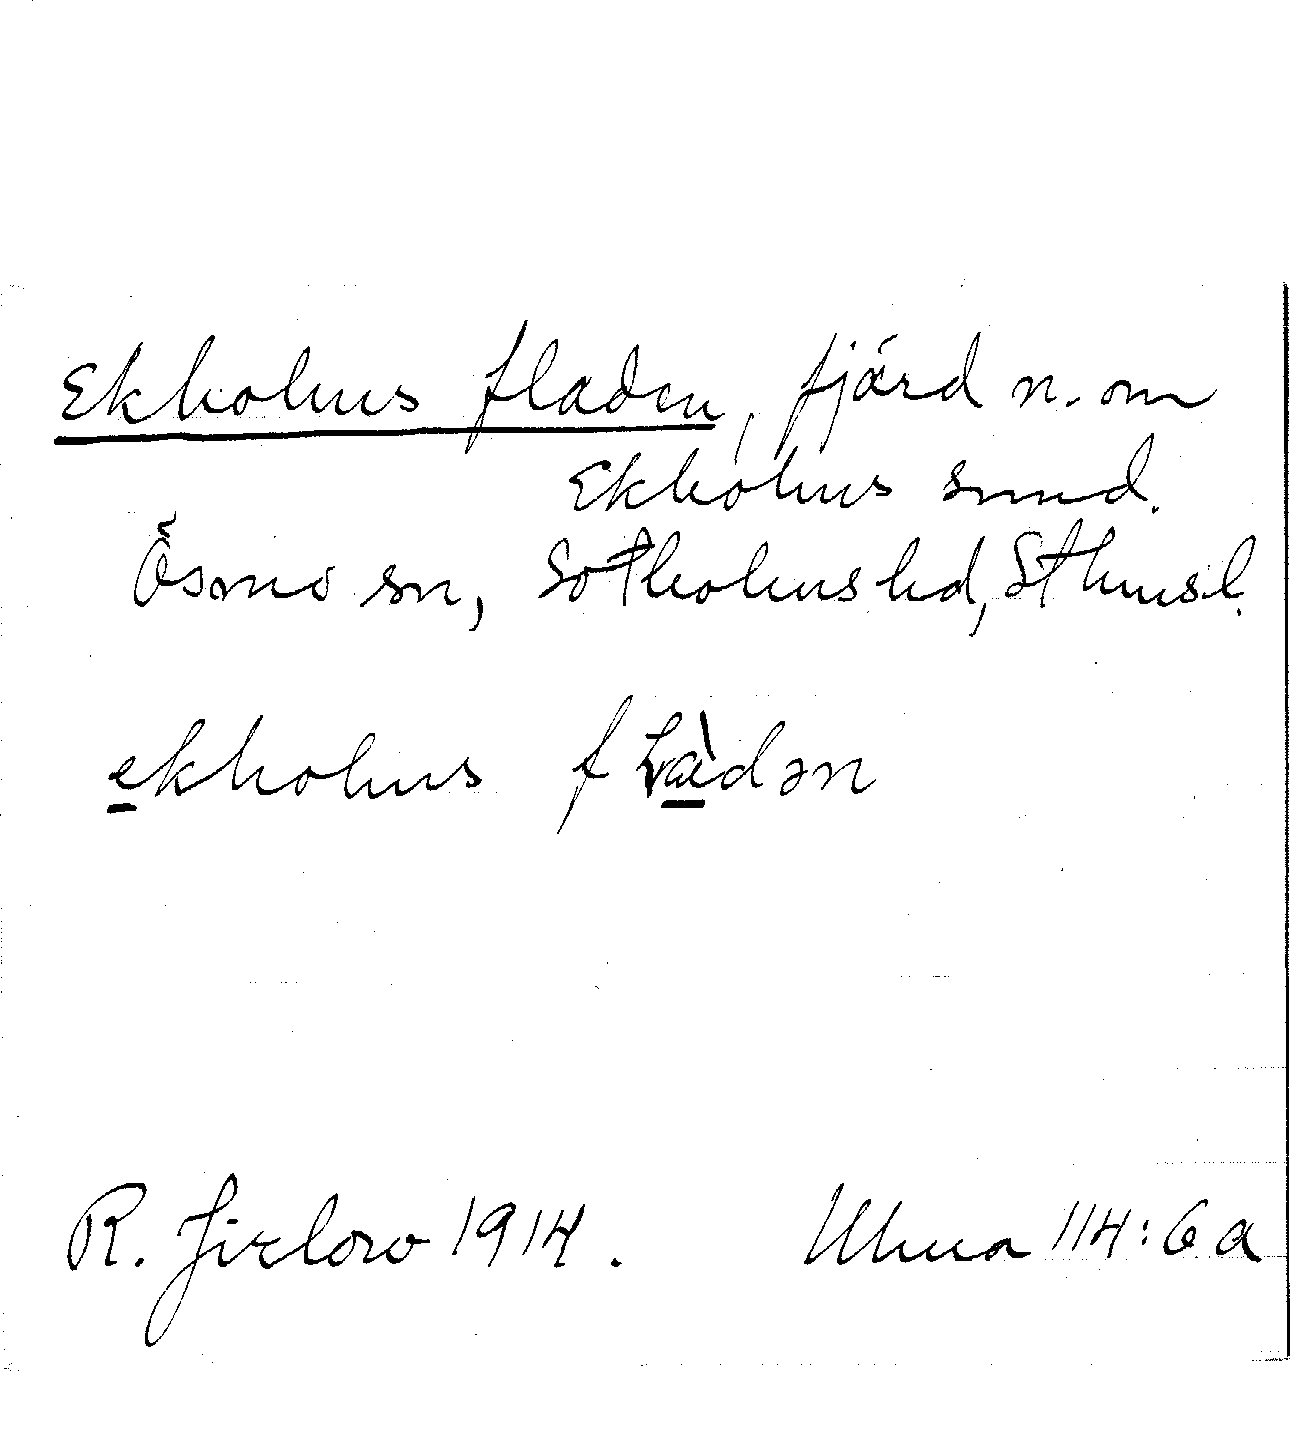 Ekholms fladen, fjärd n. om
Ekholms sund.
Ösmo sn, Sotholms hd, Sthmsl.
ekholms fladən
R. Jirlow 1914. Ulma 114:6a